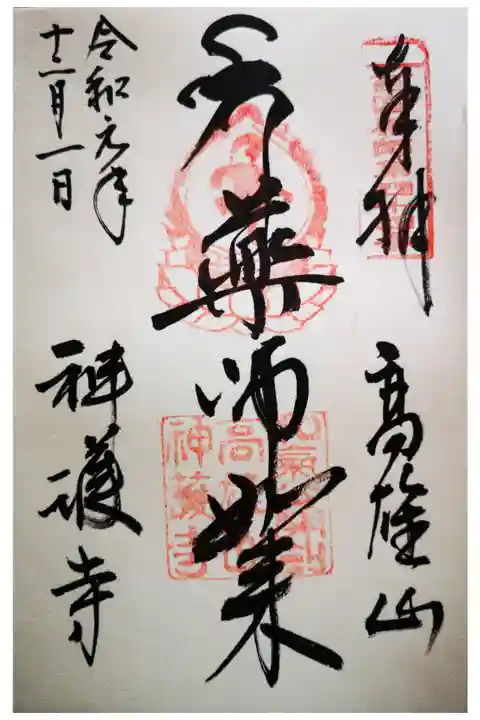 奉拝
高雄山
薬師如来
高雄山
神護寺
令和元年
十二月一日
神護寺